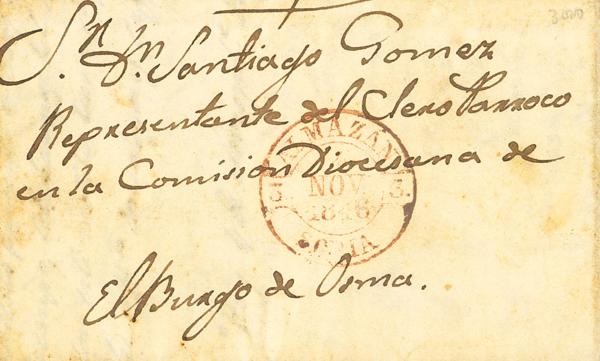 Sr. Dn. Santiago Gomez
Representante del Clero Parroco
en la Comision Diocesana de
El Burgo de Osma.
ALMAZAN
NOV
1846
3.
SORIA